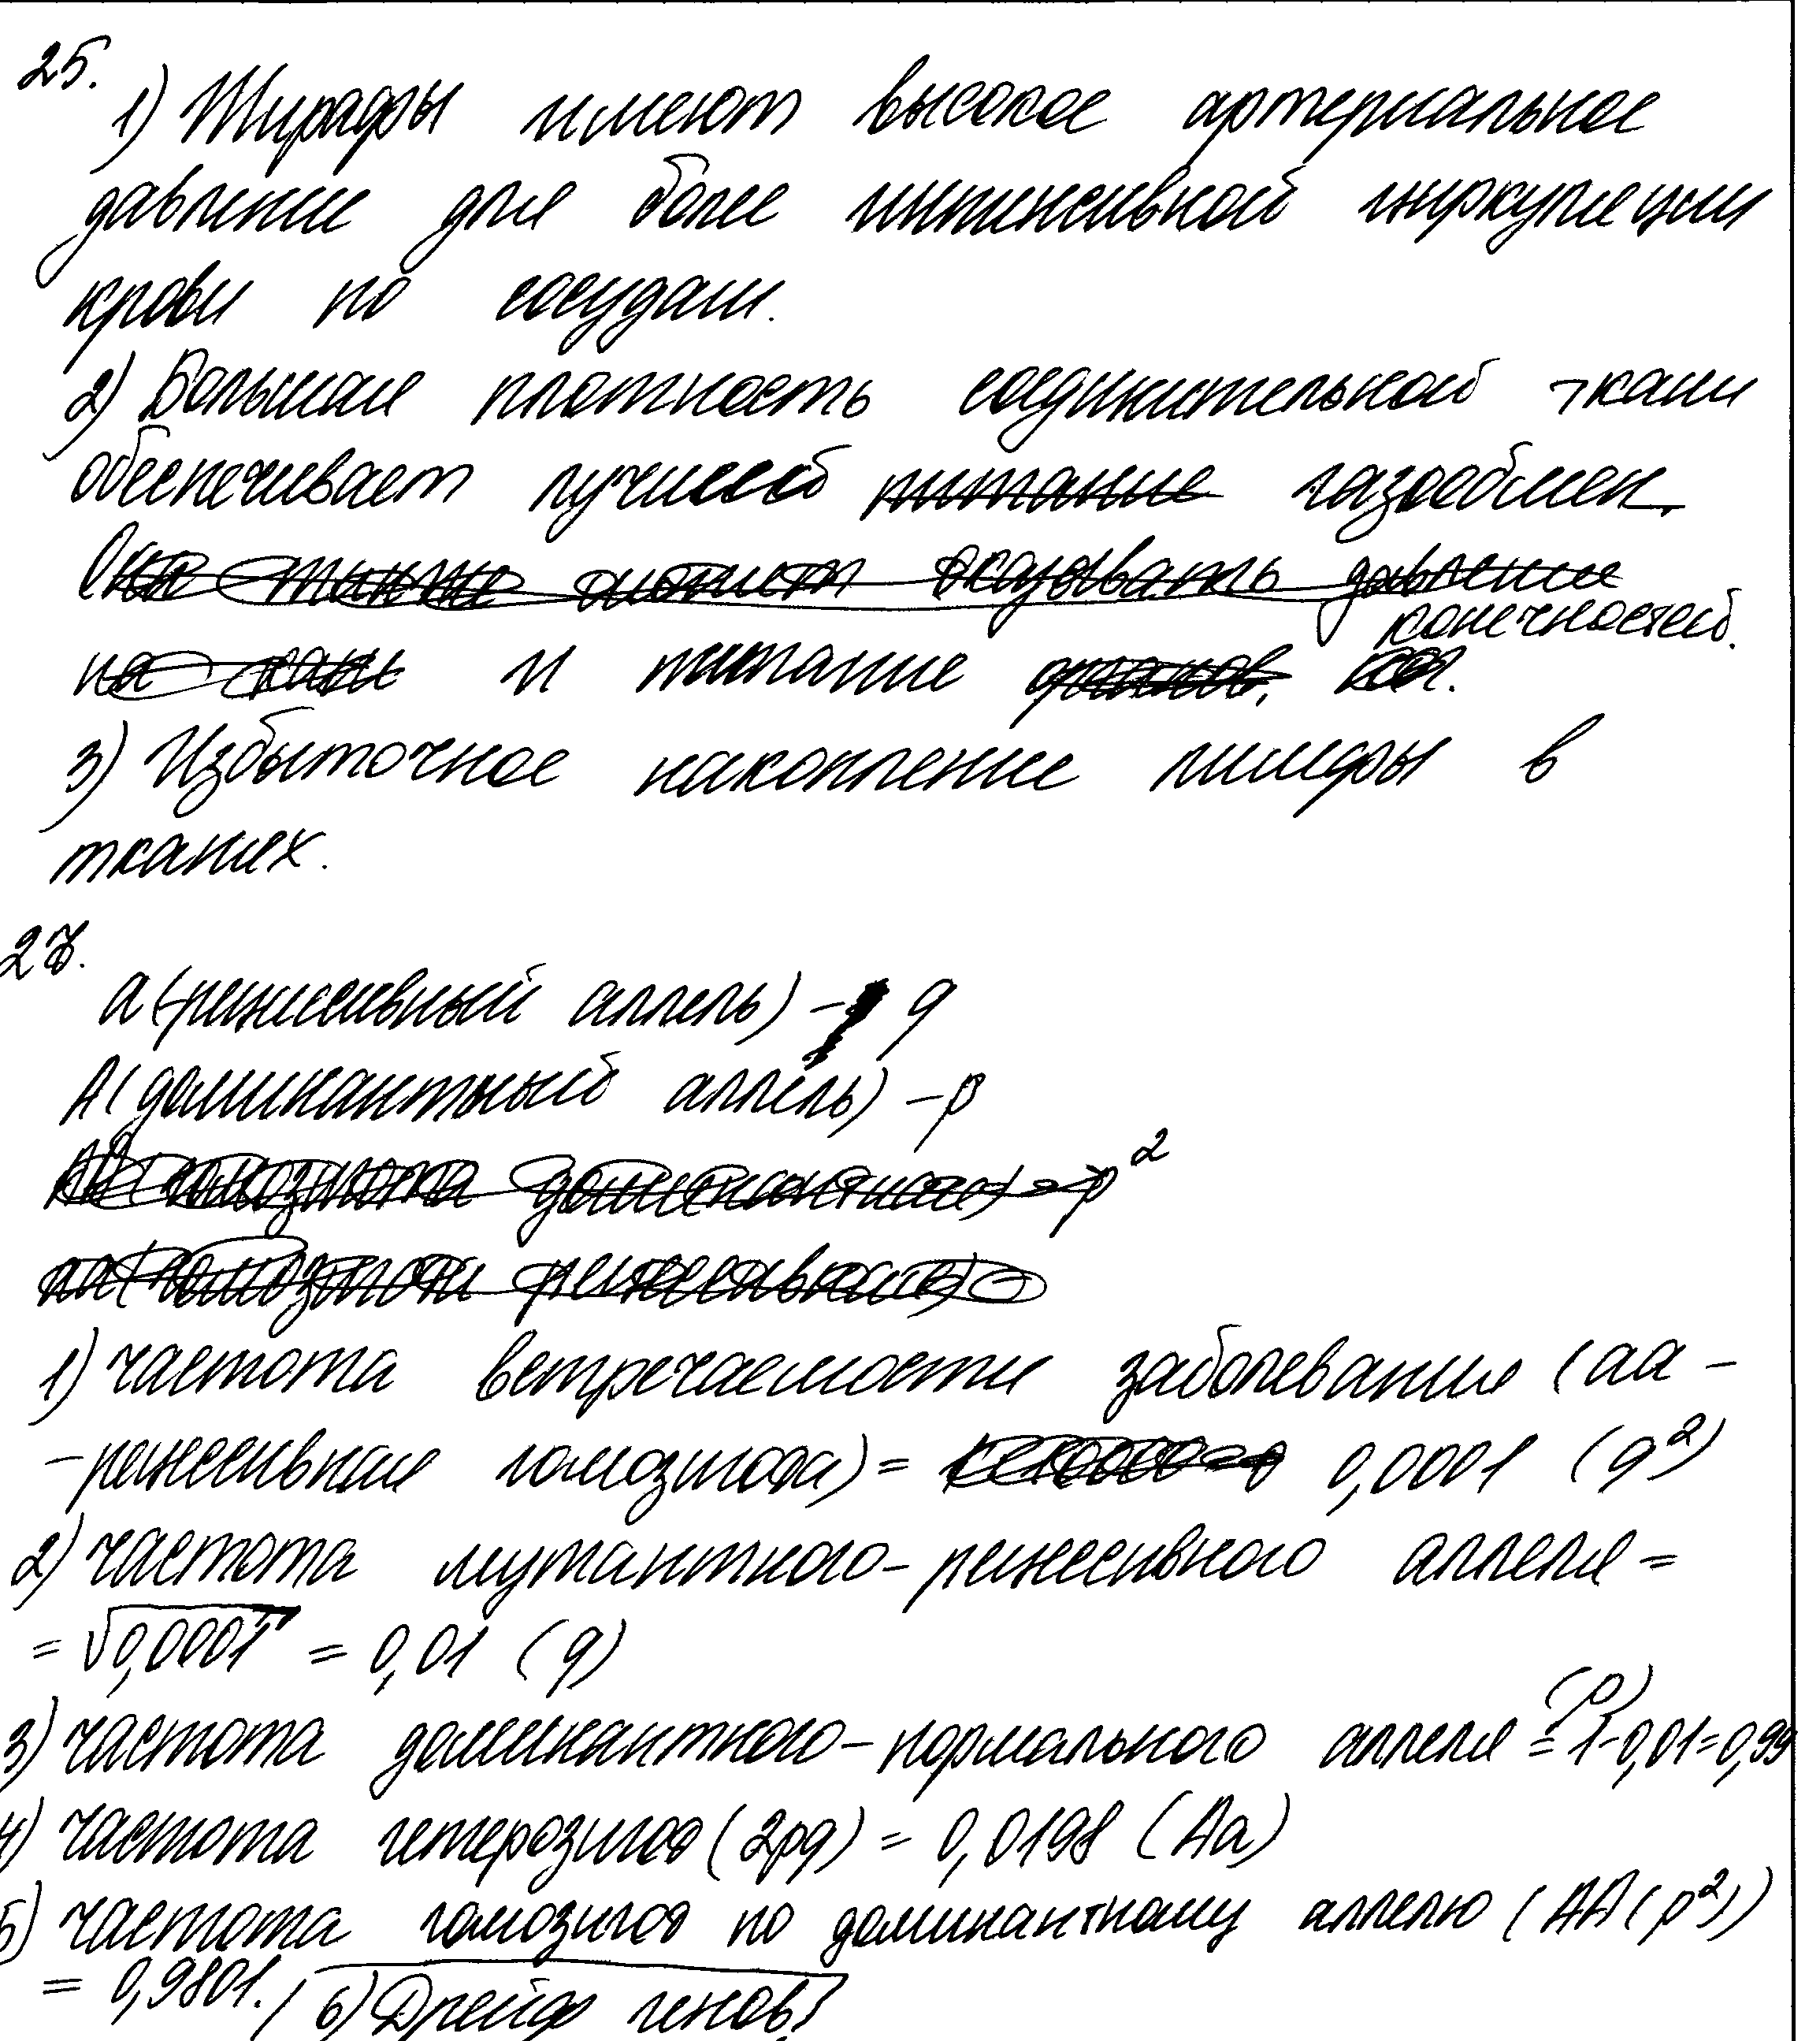 25.
1) Жирафы имеют высокое артериальное
давление для более интенсивной циркуляции
крови по сосудам.
2) Большая плотность соединительной ткани
обеспечивает лучший питание газообмен.
Она также может оказывать давление
конечностей.
на и питание органов,
3) Избыточное накопление лимфы в
тканях.
27.
а (рецессивный аллель) – q
А (доминантный аллель) – p
АА (гомозигота доминантная) – p²
аа (гомозигота рецессивная) –
1) частота встречаемости заболевания (аа –
– рецессивная гомозигота) = 0,0001 (q²)
2) частота мутантного-рецессивного аллеля =
= √0,0001 = 0,01 (q)
(p)
3) частота доминантного-нормального аллеля = 1-0,01=0,99
4) частота гетерозигот (2pq) = 0,0198 (Аа)
5) частота гомозигот по доминантному аллелю (АА (p²))
= 0,9801. 6) Дрейф генов